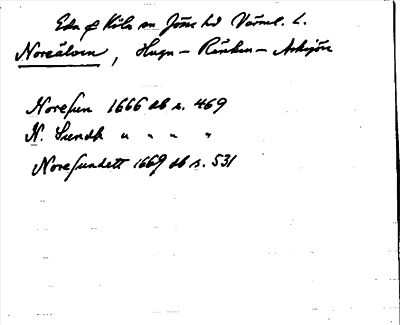 Eda o Köla sn Jösse hd Värml. l.
Noreälven, Hugn - Ränken - Askesjön
Noresun 1666 db s. 469
N. Sundh " " " "
Noresundett 1669 db s. 531